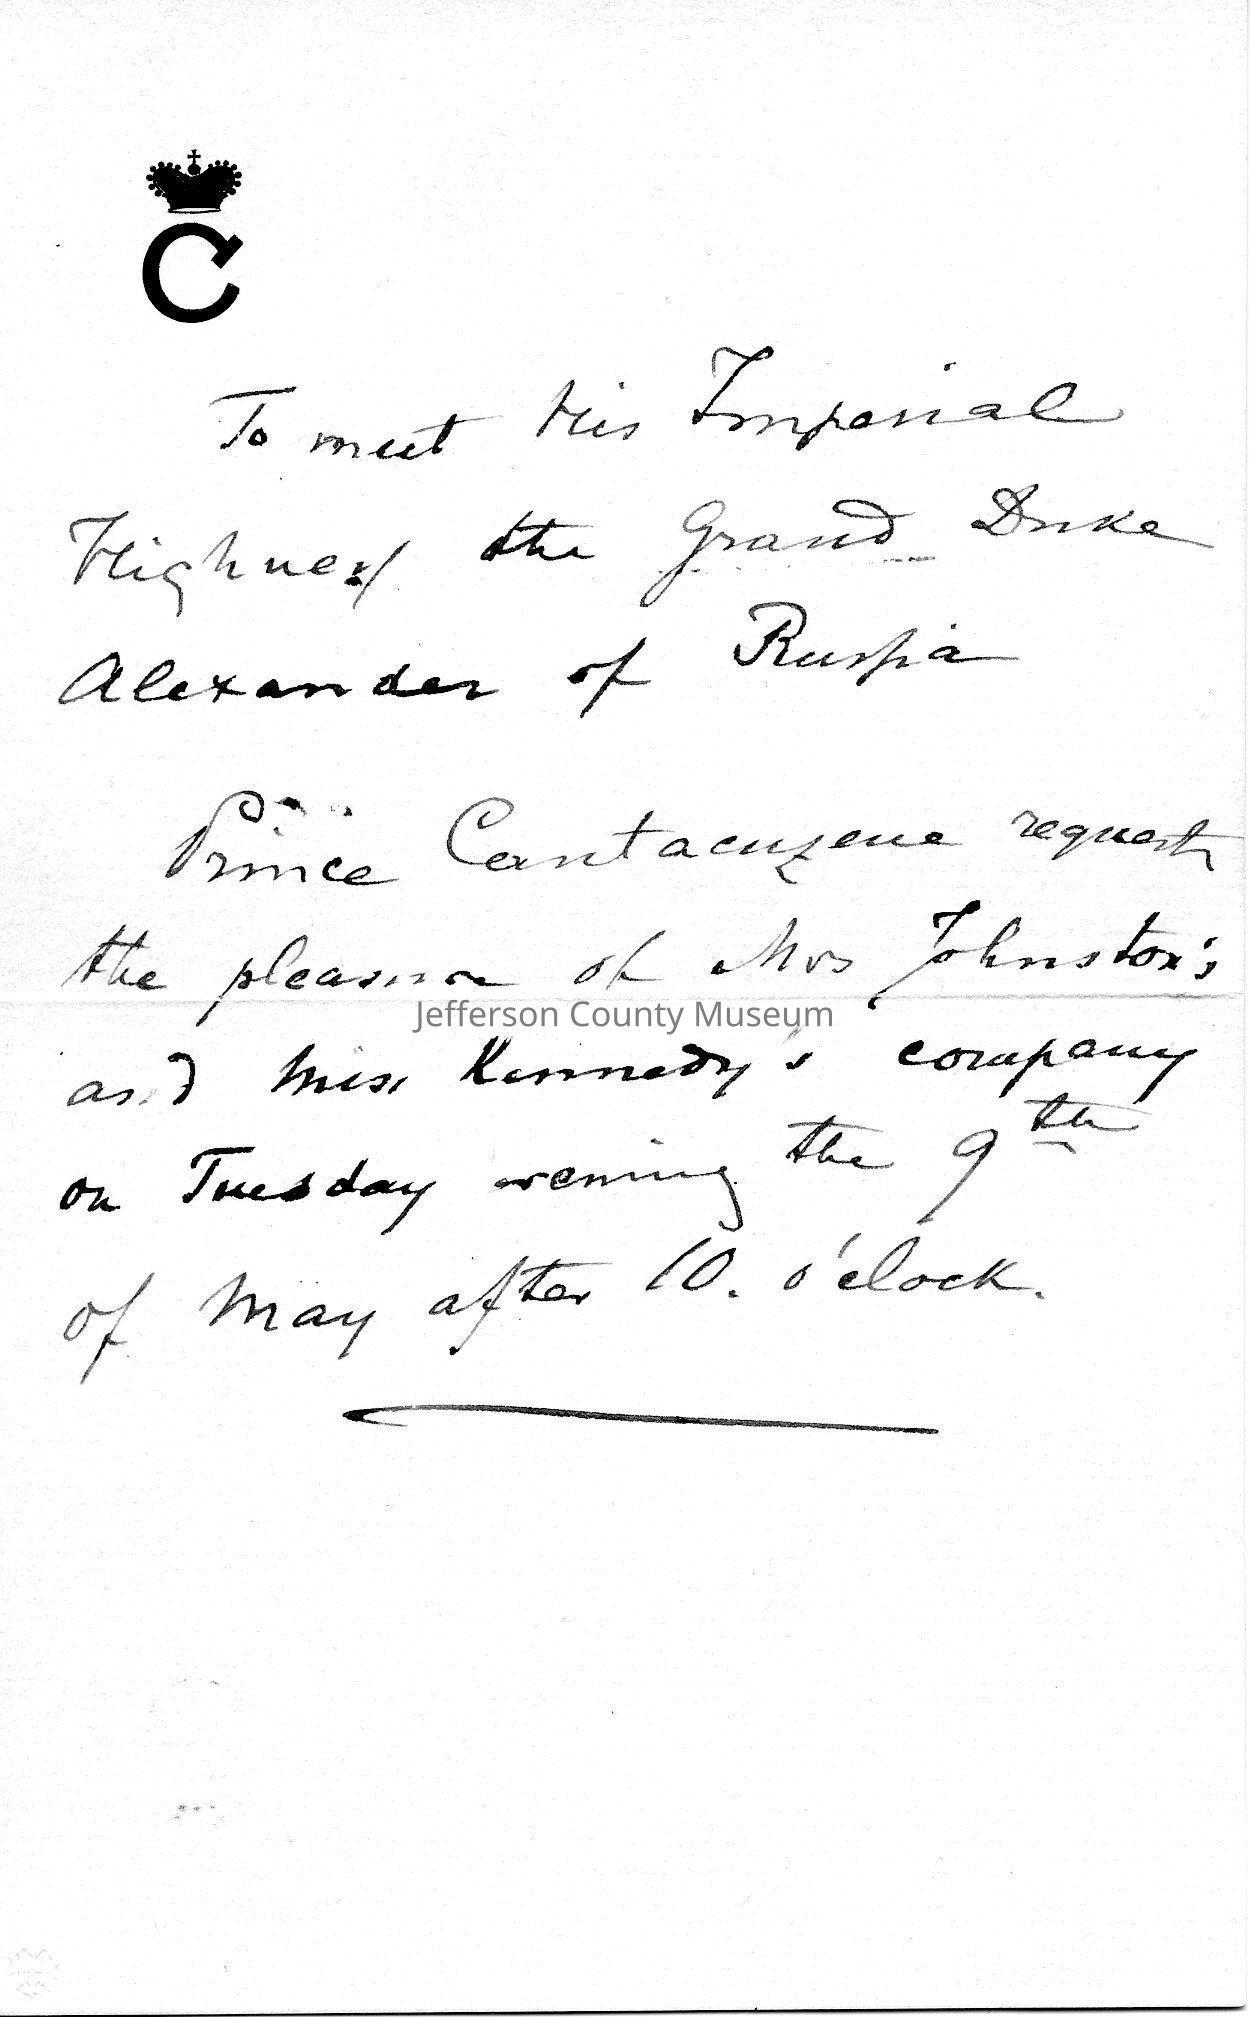 C
To meet His Imperial
Highness the Grand Duke
Alexander of Russia
Prince Cantacuzene requests
the pleasure of Mrs Johnston's
Jefferson County Museum
and Miss Kennedy's company
on Tuesday evening the 9th
of May after 10. o'clock.